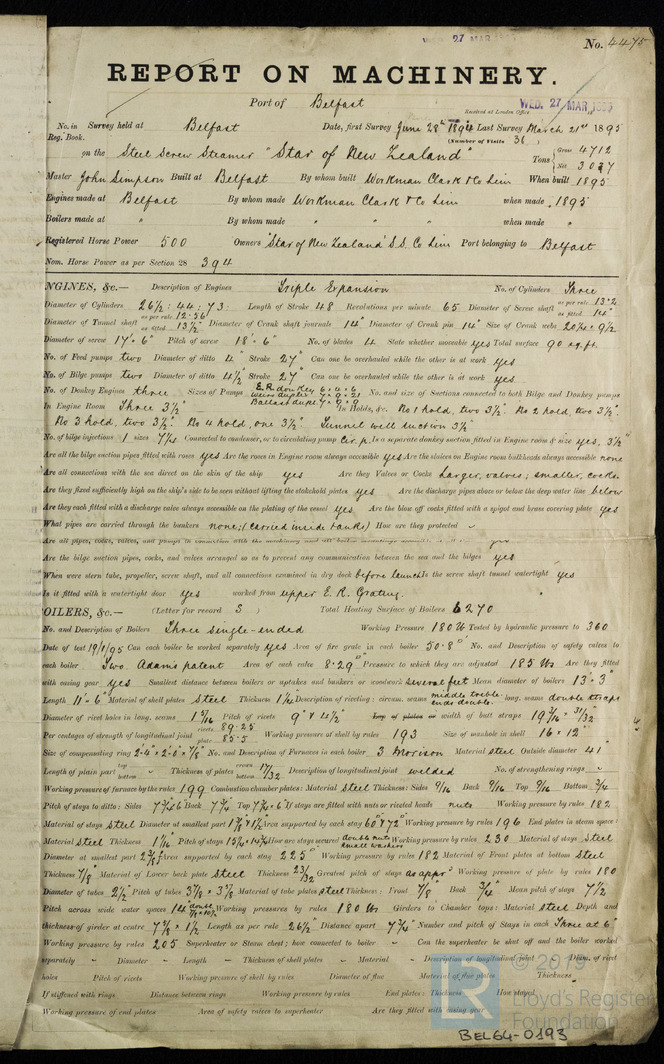 No. 4475
WED. 27 MAR 1895
REPORT ON MACHINERY.
Port of Belfast
Received at London Office
No. in Reg. Book. Survey held at Belfast Date, first Survey June 28th 1894 Last Survey March 21st 1895
(Number of Visits 36)
on the Steel Screw Steamer "Star of New Zealand" Tons Gross 4712 Net 3037
Master John Simpson Built at Belfast By whom built Workman Clark & Co Lim When built 1895
Engines made at Belfast By whom made Workman Clark & Co Lim when made 1895
Boilers made at " By whom made " " " when made "
Registered Horse Power 500 Owners "Star of New Zealand" S.S. Co Lim Port belonging to Belfast
Nom. Horse Power as per Section 28 394
NGINES, &c.— Description of Engines Triple Expansion No. of Cylinders Three
Diameter of Cylinders 26½ : 44 : 73 Length of Stroke 48 Revolutions per minute 65 Diameter of Screw shaft as per rule 13.2 as fitted 14"
Diameter of Tunnel shaft as per rule 12.56 as fitted 13½" Diameter of Crank shaft journals 14" Diameter of Crank pin 14" Size of Crank webs 20¼ × 9½
Diameter of screw 17'. 6" Pitch of screw 18'. 6" No. of blades 4 State whether moveable yes Total surface 90 sq. ft.
No. of Feed pumps two Diameter of ditto 4" Stroke 27" Can one be overhauled while the other is at work yes
No. of Bilge pumps two Diameter of ditto 4½ Stroke 27" Can one be overhauled while the other is at work yes
No. of Donkey Engines three Sizes of Pumps E.R. donkey 6 × 4 × 6 Weirs duplex 7 × 9 × 21 Ballast dupl 7 × 9 × 9 No. and size of Suctions connected to both Bilge and Donkey pumps
In Engine Room Three 3½" In Holds, &c. No 1 hold, two 3½" No 2 hold, two 3½".
No 3 hold, two 3½". No 4 hold, one 3½" Tunnel well suction 3½"
No. of bilge injections 1 sizes 7½ Connected to condenser, or to circulating pump Cir. p. Is a separate donkey suction fitted in Engine room & size yes, 3½"
Are all the bilge suction pipes fitted with roses yes Are the roses in Engine room always accessible yes Are the sluices on Engine room bulkheads always accessible none
Are all connections with the sea direct on the skin of the ship yes Are they Valves or Cocks Larger, valves; smaller, cocks.
Are they fixed sufficiently high on the ship's side to be seen without lifting the stokehold plates yes Are the discharge pipes above or below the deep water line below
Are they each fitted with a discharge valve always accessible on the plating of the vessel yes Are the blow off cocks fitted with a spigot and brass covering plate yes
What pipes are carried through the bunkers none; (carried inside tanks) How are they protected
Are all pipes, cocks, valves, and pumps in connection with the machinery and all boiler mountings yes
Are the bilge suction pipes, cocks, and valves arranged so as to prevent any communication between the sea and the bilges yes
When were stern tube, propeller, screw shaft, and all connections examined in dry dock before launch Is the screw shaft tunnel watertight yes
Is it fitted with a watertight door yes worked from upper E. R. Grating.
OILERS, &c.— (Letter for record S) Total Heating Surface of Boilers 6270
No. and Description of Boilers Three single-ended Working Pressure 180 lb Tested by hydraulic pressure to 360
Date of test 19/1/95 Can each boiler be worked separately yes Area of fire grate in each boiler 50.8 No. and Description of safety valves to
each boiler Two. Adams patent Area of each valve 8.29" Pressure to which they are adjusted 185 lbs Are they fitted
with easing gear yes Smallest distance between boilers or uptakes and bunkers or woodwork several feet Mean diameter of boilers 13'. 3"
Length 11'. 6" Material of shell plates Steel Thickness 1¼ Description of riveting : circum. seams middle treble ends double. long. seams double straps
Diameter of rivet holes in long. seams 1 5/16 Pitch of rivets 9" & 4½" Lap of plates or width of butt straps 19 7/16 × 31/32"
Per centages of strength of longitudinal joint rivets 89.25 plate 85.5 Working pressure of shell by rules 193 Size of manhole in shell 16" × 12"
Size of compensating ring 2'.4" × 2'.0" × 7/8" No. and Description of Furnaces in each boiler 3 Morison Material steel Outside diameter 41"
Length of plain part top bottom Thickness of plates crown bottom 17/32 Description of longitudinal joint welded No. of strengthening rings
Working pressure of furnace by the rules 199 Combustion chamber plates: Material Steel Thickness: Sides 9/16 Back 9/16 Top 9/16 Bottom 3/4
Pitch of stays to ditto: Sides 7¾×6 Back 7¾ Top 7¾×6 If stays are fitted with nuts or riveted heads nuts Working pressure by rules 182
Material of stays steel Diameter at smallest part 1⅜ & 1½ Area supported by each stay 60 & 72 Working pressure by rules 196 End plates in steam space:
Material steel Thickness 1 1/16 Pitch of stays How are stays secured double nuts small washer Working pressure by rules 230 Material of stays Steel
Diameter at smallest part 2⅞" Area supported by each stay 225 Working pressure by rules 182 Material of Front plates at bottom Steel
Thickness 7/8" Material of Lower back plate Steel Thickness 23/32 Greatest pitch of stays as appr'd Working pressure of plate by rules 180
Diameter of tubes 2½ Pitch of tubes 3⅞ × 3⅝ Material of tube plates steel Thickness: Front 7/8 Back 3/4 Mean pitch of stays 7½
Pitch across wide water spaces 14" Working pressures by rules 180 lbs Girders to Chamber tops: Material steel Depth and
thickness of girder at centre 7⅜ × 1½ Length as per rule 26½" Distance apart 7¾" Number and pitch of Stays in each Three at 6"
Working pressure by rules 205 Superheater or Steam chest; how connected to boiler Can the superheater be shut off and the boiler worked
separately Diameter Length Thickness of shell plates Material Description of longitudinal joint Diam. of rivet
holes Pitch of rivets Working pressure of shell by rules Diameter of flue Material of flue plates Thickness
If stiffened with rings Distance between rings Working pressure by rules End plates: Thickness How stayed
Working pressure of end plates Area of safety valves to superheater Are they fitted with easing gear
© 2019
Lloyd's Register
Foundation
BEL64-0193